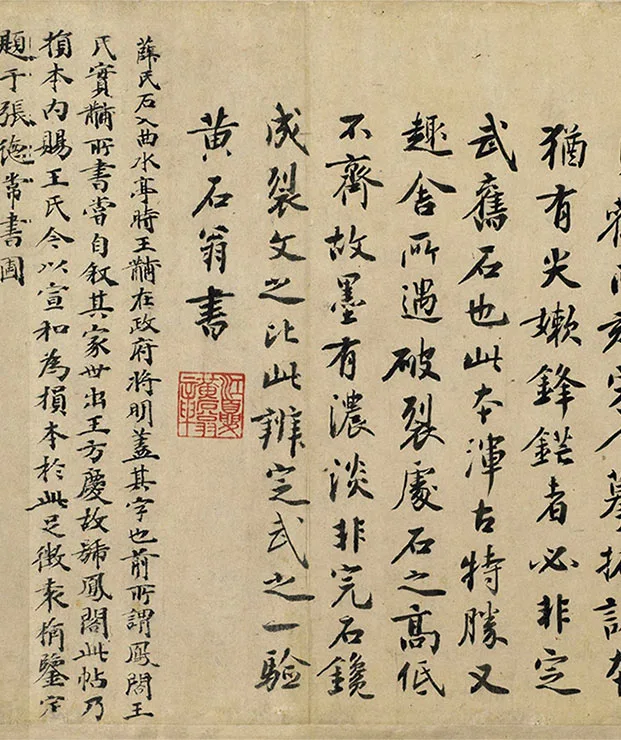 人摹拓諸本
猶有尖嫰鋒鋩者必非定
武舊石也此本渾古特勝又
趣舍所遇破裂處石之高低
不齊故墨有濃淡非完石鑱
成裂文之比此辨定武之一驗
黄石翁書
薛氏石入曲水亭時王黼在政府將明蓋其字也前所謂鳳閣王
氏實黼所書嘗自叙其家世出王方慶故號鳳閣此帖乃
損本内賜王氏今以宣和為損本於此足徵袁桷鑒定
題于張德常書圃